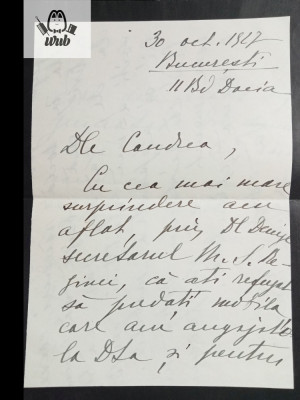 wub
30 oct. 1927
București
11 Bd Dacia
Dle Candrea,
Cu cea mai mare
surprindere am
aflat, prin Dl
secretarul M. S. Re-
ginei, că ați refuzat
să predați mobila
care am angajat-o
la Dta și pentru